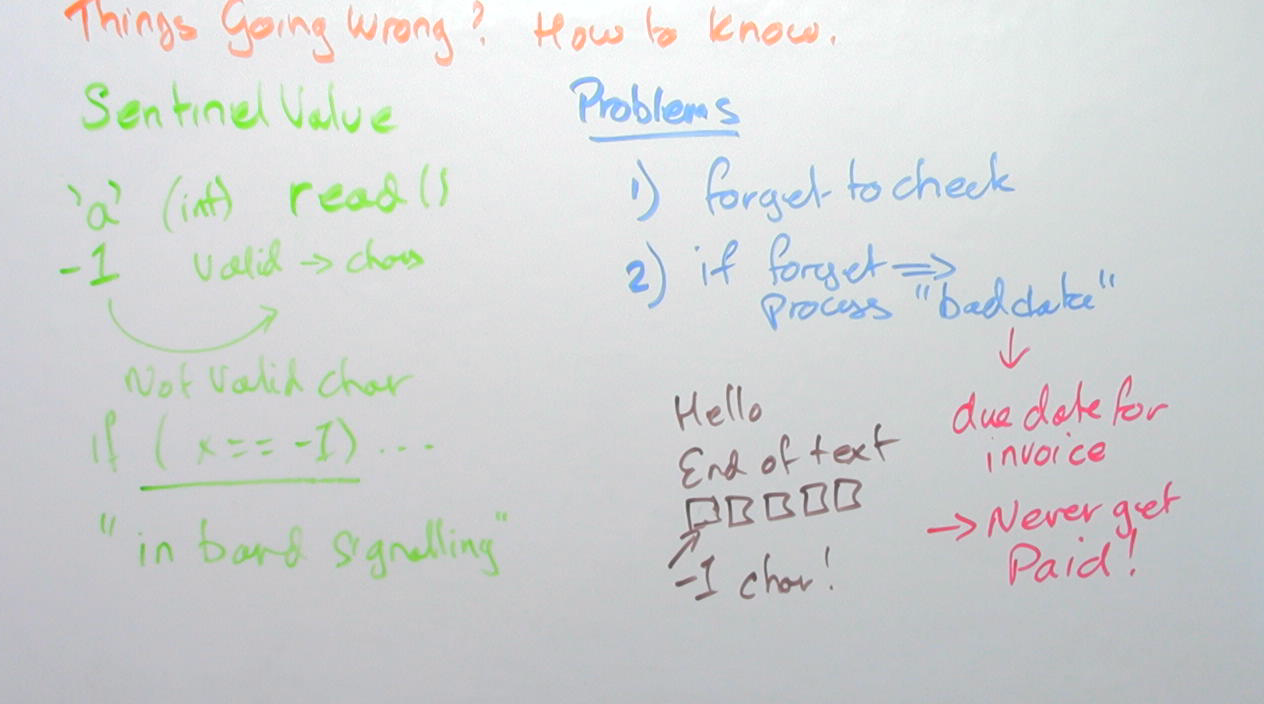 Things Going Wrong? How to know.
Sentinel Value
'a' (int) read()
-1 valid → chars
Not valid char
if (x == -1) ...
"in band signalling"
Problems
1) forget to check
2) if forget ⇒
process "bad data"
↓
due date for
invoice
→ Never get
Paid!
Hello
End of text
-1 char!